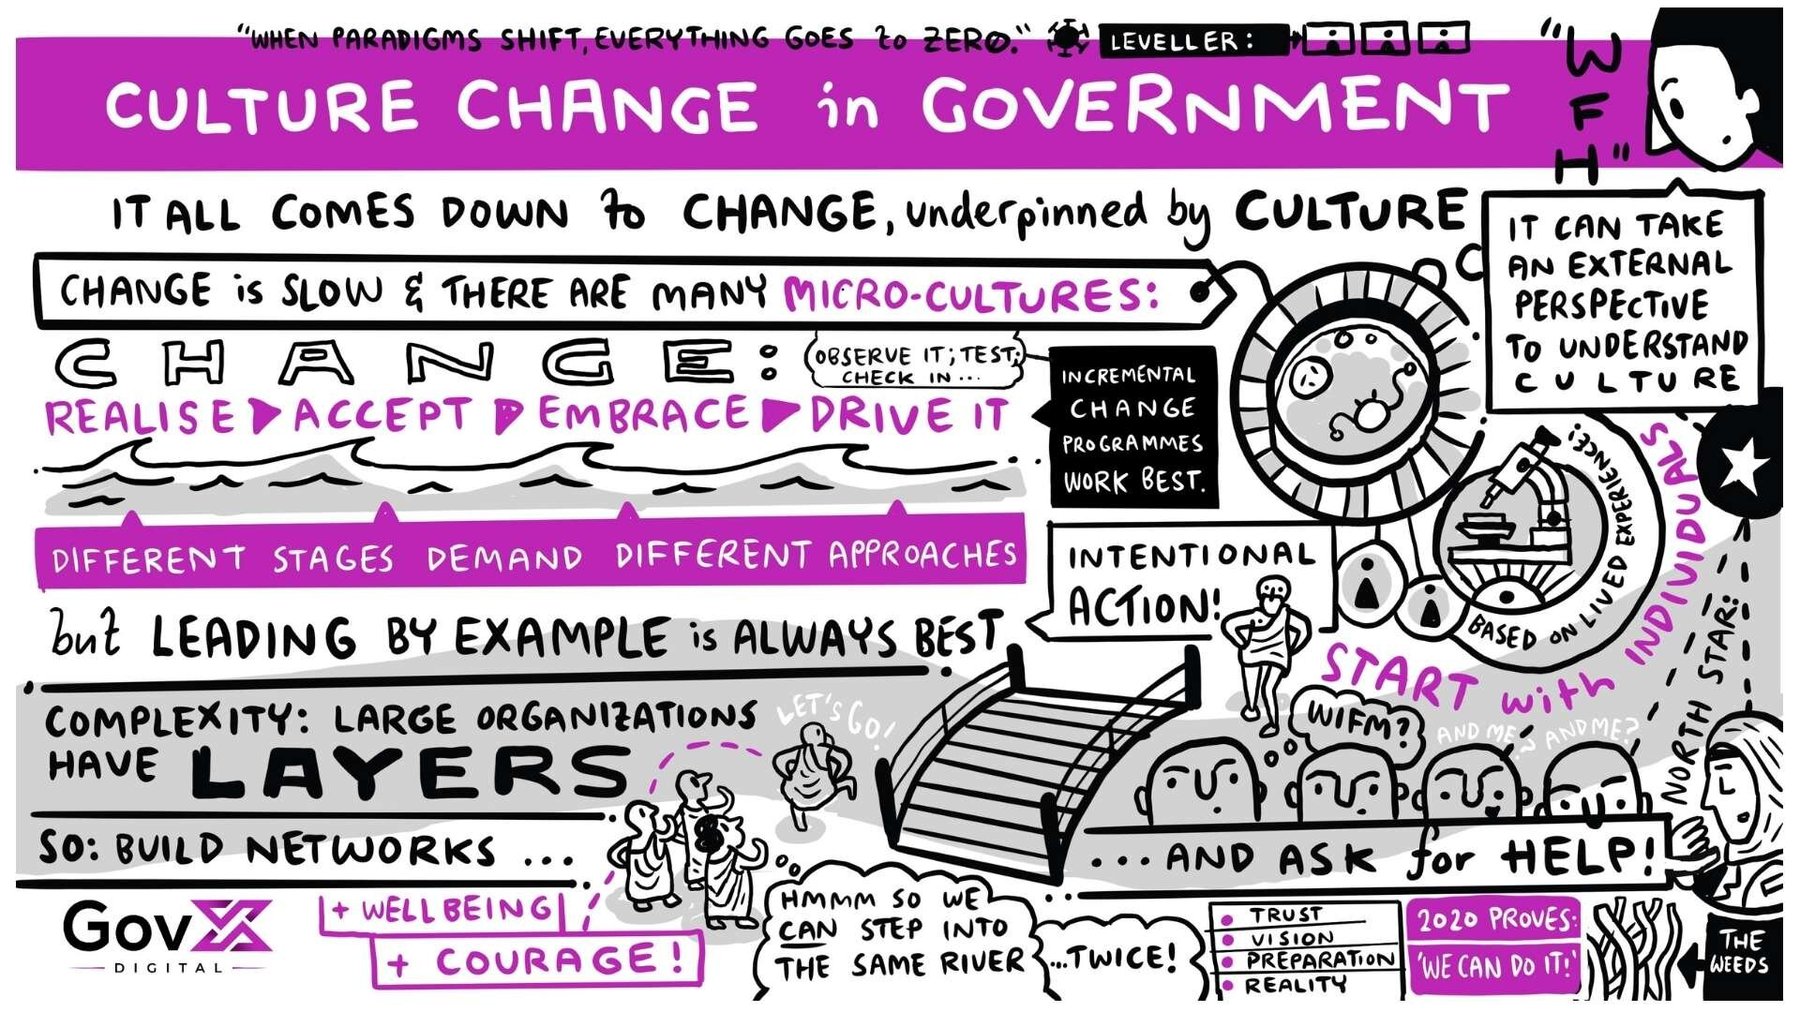 "WHEN PARADIGMS SHIFT, EVERYTHING GOES to ZERO."
LEVELLER:
CULTURE CHANGE in GOVERNMENT
"WFH"
IT ALL COMES DOWN to CHANGE, underpinned by CULTURE
IT CAN TAKE
AN EXTERNAL
PERSPECTIVE
TO UNDERSTAND
CULTURE
CHANGE is SLOW & THERE ARE MANY MICRO-CULTURES:
CHANGE:
OBSERVE IT; TEST;
CHECK IN...
REALISE ▶ ACCEPT ▶ EMBRACE ▶ DRIVE IT
INCREMENTAL
CHANGE
PROGRAMMES
WORK BEST.
DIFFERENT STAGES DEMAND DIFFERENT APPROACHES
but LEADING BY EXAMPLE is ALWAYS BEST
INTENTIONAL
ACTION!
BASED ON LIVED EXPERIENCE!
START with INDIVIDUALS
NORTH STAR:
COMPLEXITY: LARGE ORGANIZATIONS
HAVE LAYERS
LET'S GO!
WIFM?
AND ME? AND ME?
SO: BUILD NETWORKS ...
...AND ASK for HELP!
GovX
DIGITAL
+ WELLBEING
+ COURAGE!
HMMM SO WE
CAN STEP INTO
THE SAME RIVER
...TWICE!
TRUST
VISION
PREPARATION
REALITY
2020 PROVES:
'WE CAN DO IT!'
THE
WEEDS